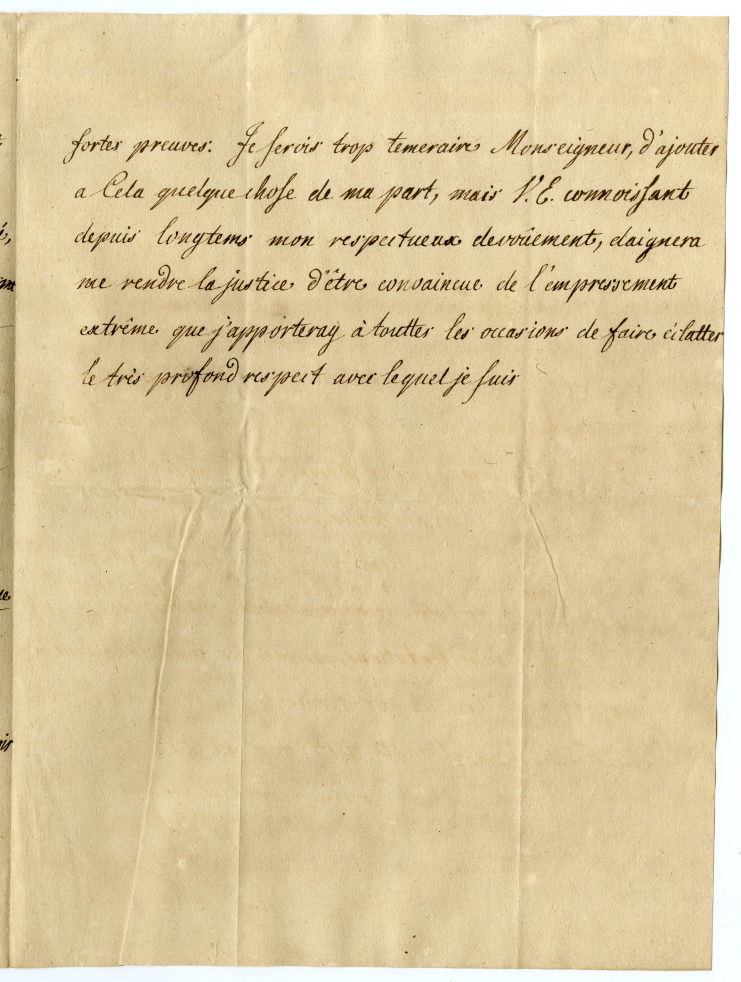 fortes preuves. Je serois trop temeraire Monseigneur, d'ajouter
a Cela quelque chose de ma part, mais V. E. connoissant
depuis longtems mon respectueux devoûement, daignera
me rendre la justice d'être convaincue de l'empressement
extrême que j'apporteray à touttes les occasions de faire eclatter
le très profond respect avec lequel je suis